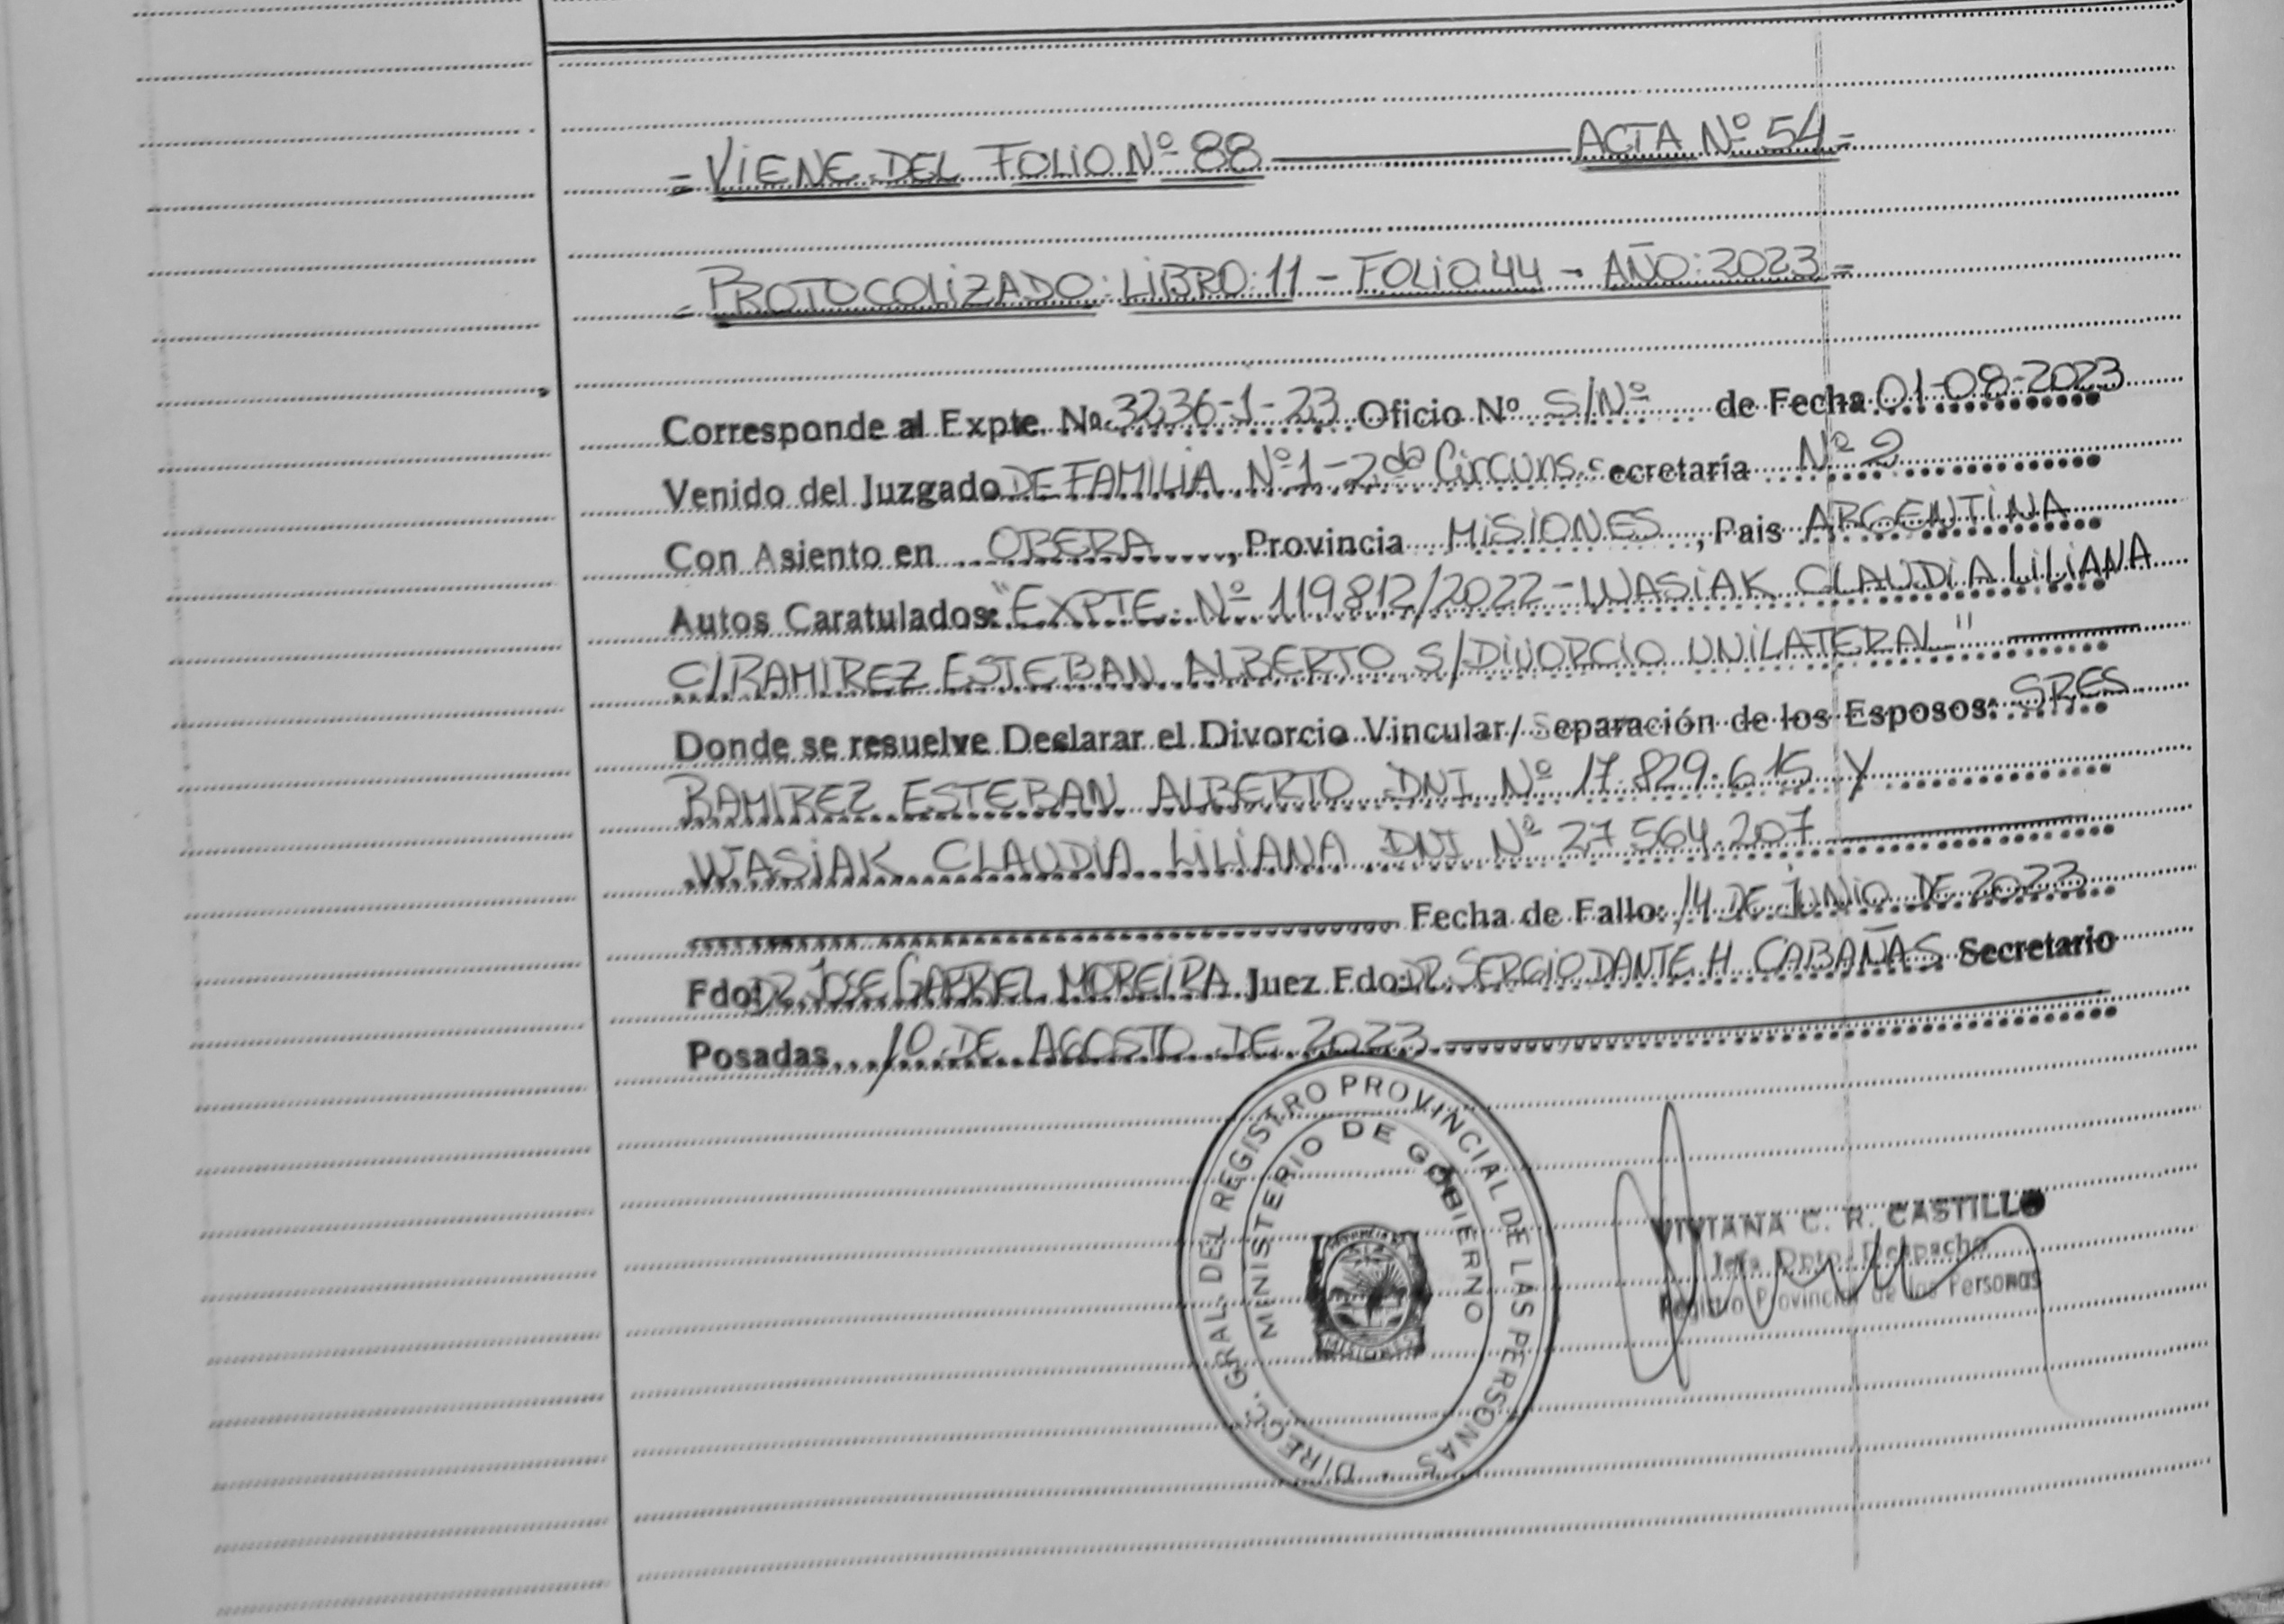 = VIENE DEL FOLIO Nº 88 ——— ACTA Nº 54 =
= PROTOCOLIZADO: LIBRO: 11 - FOLIO 44 - AÑO: 2023 =
Corresponde al Expte. Nº 3236-1-23 Oficio Nº S/Nº de Fecha 01-08-2023
Venido del Juzgado DE FAMILIA Nº 1 - 2da Circuns. Secretaría Nº 2
Con Asiento en OBERA, Provincia MISIONES, Pais ARGENTINA
Autos Caratulados: "EXPTE. Nº 119812/2022 - WASIAK CLAUDIA LILIANA
C/ RAMIREZ ESTEBAN ALBERTO S/ DIVORCIO UNILATERAL"
Donde se resuelve Declarar el Divorcio Vincular/ Separación de los Esposos: SRES
RAMIREZ ESTEBAN ALBERTO DNI Nº 17.829.615 Y
WASIAK CLAUDIA LILIANA DNI Nº 27.564.207
Fecha de Fallo: 14 DE JUNIO DE 2023
Fdo: DR. JOSE GABRIEL MOREIRA Juez Fdo: DR. SERGIO DANTE H CABAÑAS Secretario
Posadas, 10 DE AGOSTO DE 2023
DIREC. GRAL. DEL REGISTRO PROVINCIAL DE LAS PERSONAS
MINISTERIO DE GOBIERNO
MISIONES
VIVIANA C. R. CASTILLO
Jefa Dpto. Despacho
Registro Provincial de las Personas